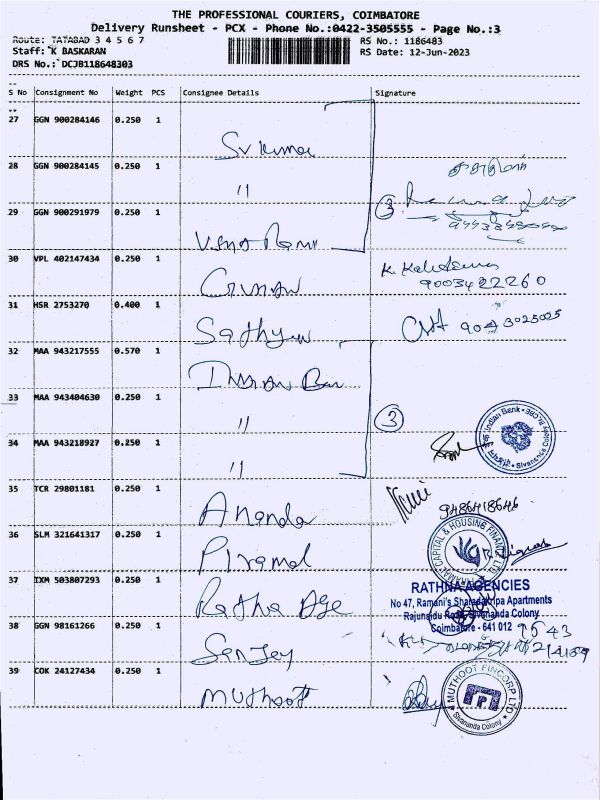 THE PROFESSIONAL COURIERS, COIMBATORE
Delivery Runsheet - PCX - Phone No.:0422-3505555 - Page No.:3
Route: TATABAD 3 4 5 6 7
RS No.: 1186483
Staff: K BASKARAN
RS Date: 12-Jun-2023
DRS No.: DCJB118648303
S No Consignment No Weight PCS Consignee Details Signature
27 GGN 900284146 0.250 1
28 GGN 900284145 0.250 1 "
29 GGN 900291979 0.250 1 3
30 VPL 402147434 0.250 1
9003422260
31 HSR 2753270 0.400 1 Sathyan
32 MAA 943217555 0.570 1
33 MAA 943404630 0.250 1 " 3
Indian Bank
Sivananda Colony
34 MAA 943218927 0.250 1 "
35 TCR 29801181 0.250 1 Ananda 9486418646
36 SLM 321641317 0.250 1 Piramal
PIRAMAL CAPITAL & HOUSING FINANCE LTD
37 IXM 503807293 0.250 1 Ratna Age
RATHNA AGENCIES
No 47, Ramani's Sharadakripa Apartments
Rajunaidu Road, Sivananda Colony
Coimbatore - 641 012
38 GGN 98161266 0.250 1 Sanjey
39 COK 24127434 0.250 1 Muthoot
MUTHOOT FINCORP LTD